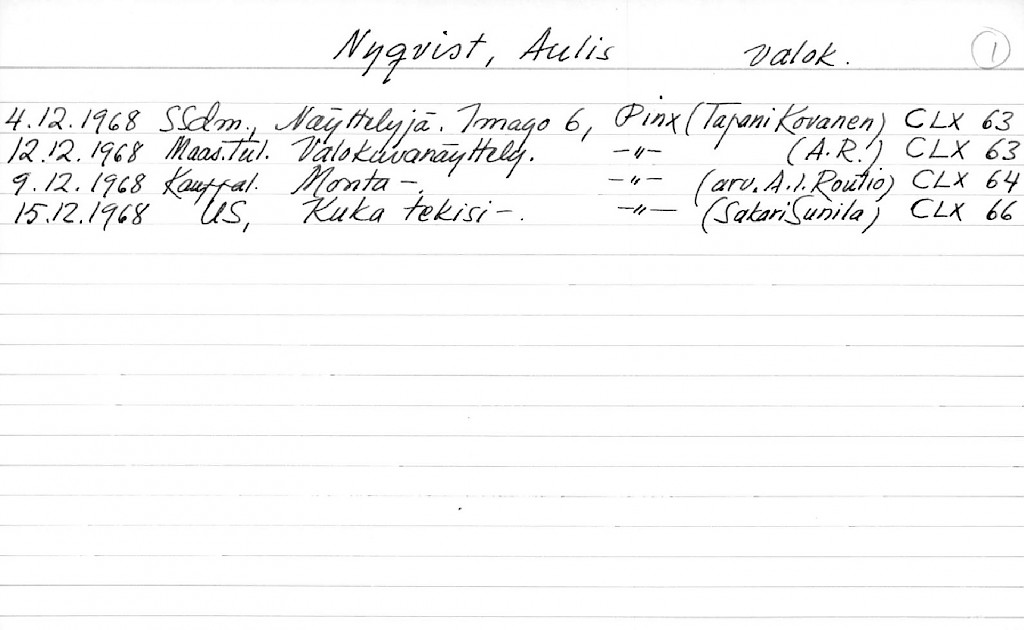 Nyqvist, Aulis valok. 1
4.12.1968 SSdm., Näyttelyjä. Imago 6, Pinx (Tapani Kovanen) CLX 63
12.12.1968 Maas.Tul. Valokuvanäyttely. -"- (A.R.) CLX 63
9.12.1968 Kauppal. Monta -. -"- (arv. A.I. Routio) CLX 64
15.12.1968 US, Kuka tekisi -. -"- (Sakari Sunila) CLX 66